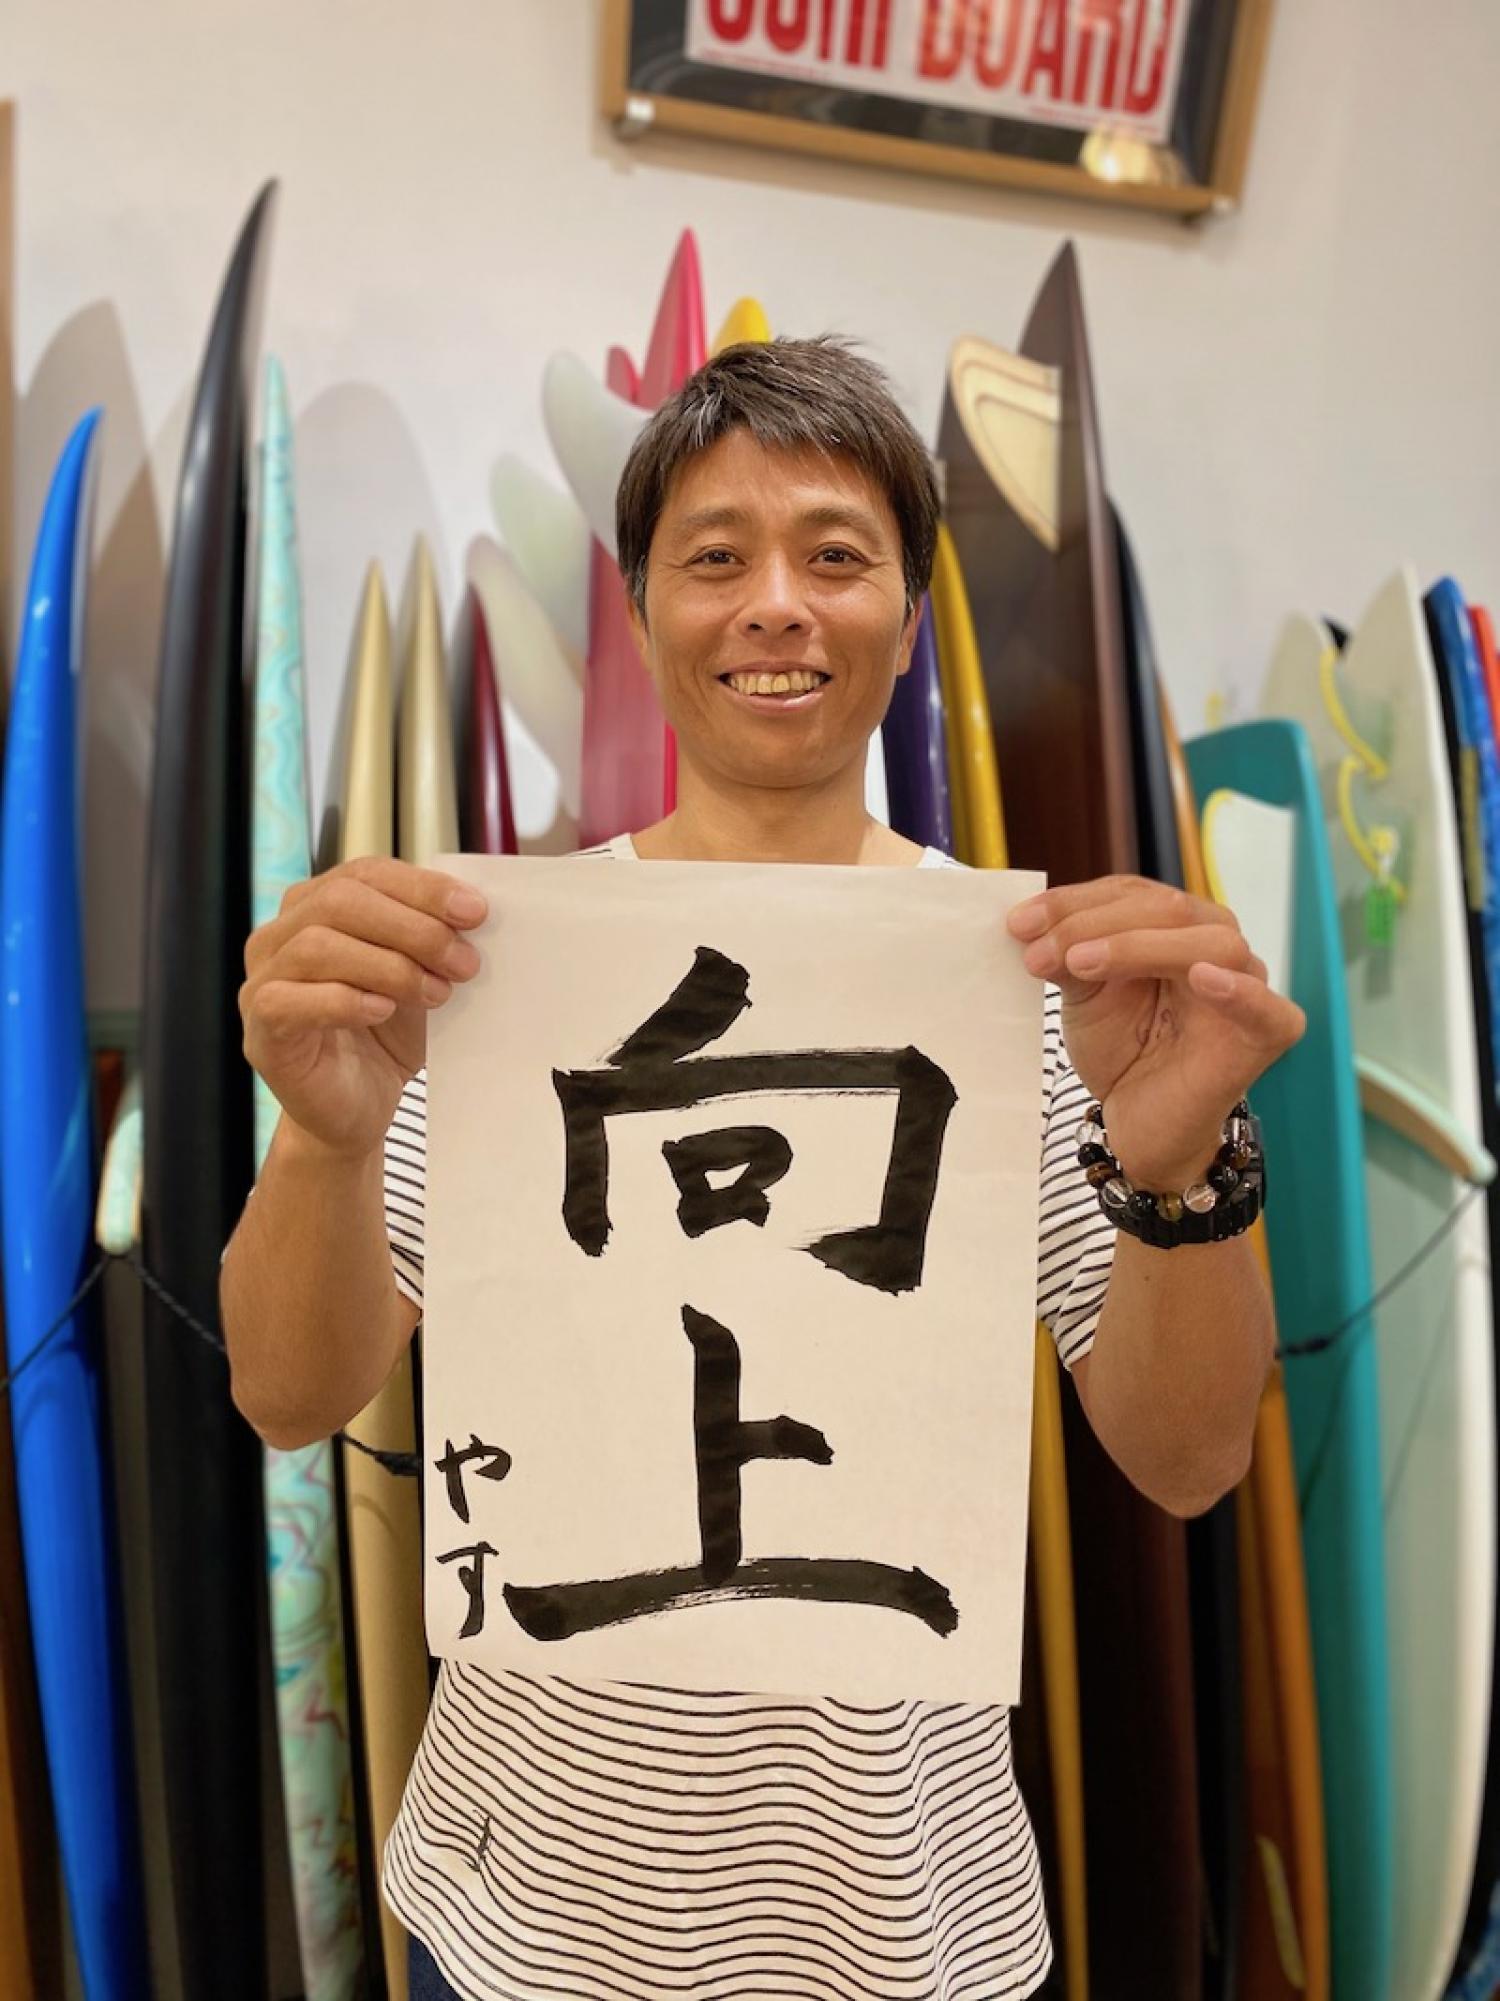 SURFBOARD
向上
やす